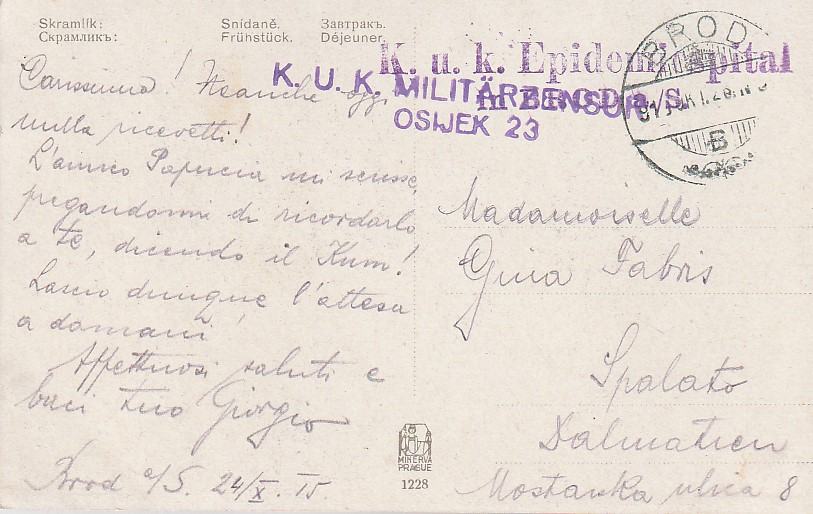 Skramlík:
Скрамликъ:
Snídaně. Завтракъ.
Frühstück. Déjeuner.
K. u. k. Epidemiespital
in BROD a/S.
K. U. K. MILITÄRZENSUR
OSIJEK 23
BROD
B
Carissima! Neanche oggi
nulla ricevetti!
L'amico Papucia mi scrisse,
pregandomi di ricordarlo
a te, dicendo il Kum!
Lascio dunque l'attesa
a domani!
Affettuosi saluti e
baci tuo Giorgio
Brod a/S. 24/X. 15
Madamoiselle
Gina Fabris
Spalato
Dalmatien
Mostarska ulica 8
MINERVA
PRAGUE
1228